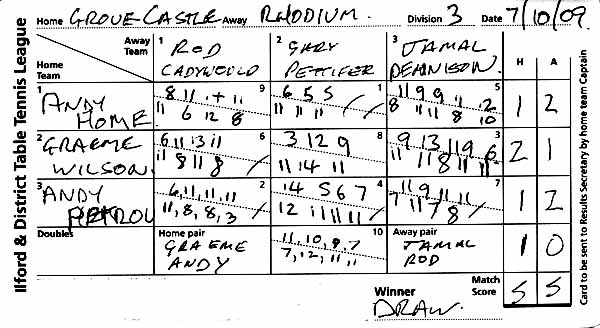 Ilford & District Table Tennis League
Home GROVE CASTLE Away RHODIUM. Division 3 Date 7/10/09.
Away Team 1 ROD CADYWOULD 2 GARY PETTIFER 3 JAMAL DENNISON H A
Home Team
1 ANDY HOME 9 8 11 + 11 1 6 5 5 5 11 9 9 11 12 1 2
11 6 12 8 11 11 11 8 11 11 8 10
2 GRAEME WILSON 6 6 11 13 11 8 3 12 9 3 9 13 11 9 6 2 1
11 8 11 8 11 14 11 11 11 8 11 11
3 ANDY 2 6, 11, 11, 11 4 14 5 6 7 7 7 11 9 11 11 1 2
11, 8, 8, 3 12 11 11 11 11 7 8
Doubles Home pair GRAEME ANDY 10 11, 10, 9, 7 Away pair JAMAL ROD 1 0
7, 12, 11, 11
Winner DRAW. Match Score 5 5
Card to be sent to Results Secretary by home team Captain